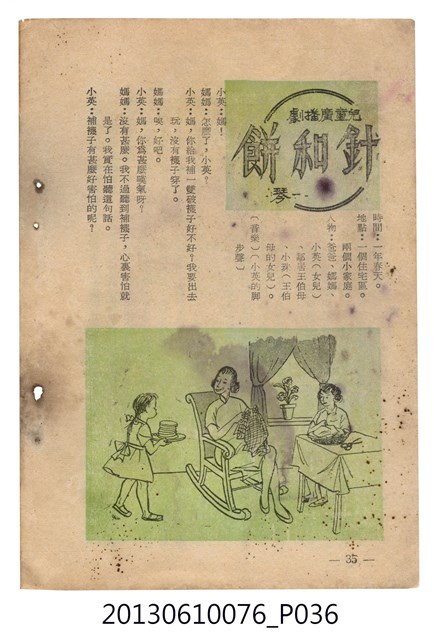 兒童廣播劇
針和餅
一琴
時間：一年春天。
地點：一個住宅區。
兩個小家庭。
人物：爸爸、媽媽、
小英（女兒）
、鄰居王伯母
、小莉（王伯
母的女兒）。
（音樂）（小英的脚
步聲）
小英：媽！
媽媽：怎麼了，小英？
小英：媽，你給我補一雙破襪子好不好？我要出去
玩，沒有襪子穿了。
媽媽：唉，好吧。
小英：媽，你爲甚麼嘆氣呀？
媽媽：沒有甚麼。我不過聽到補襪子，心裏害怕就
是了。我實在怕聽這句話。
小英：補襪子有甚麼好害怕的呢？
— 35 —
20130610076_P036